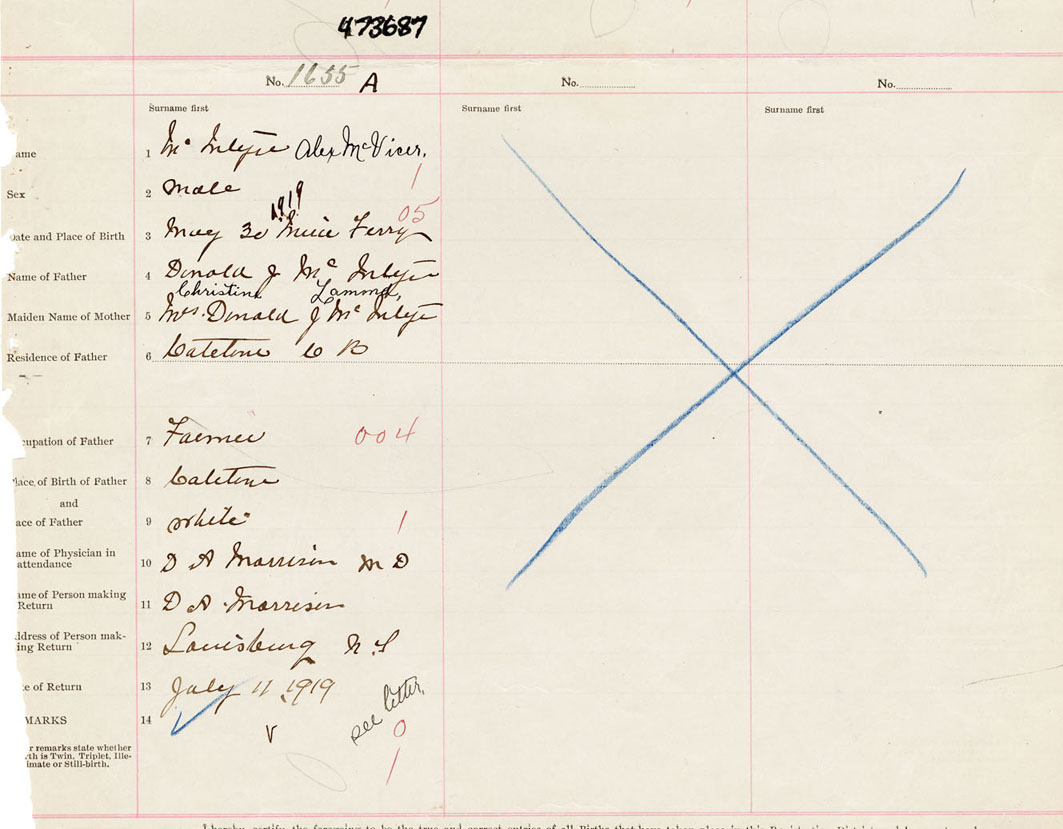 473687
No. 1655 A
No.
No.
Surname first
Surname first
Surname first
ame 1 Mc Intyre Alex McVicer.
Sex 2 male 1
1919 05
Date and Place of Birth 3 May 30 Ferry
Name of Father 4 Donald J Mc Intyre
Christina Lammond,
Maiden Name of Mother 5 Mrs. Donald J Mc Intyre
Residence of Father 6 Catalone C B
cupation of Father 7 Farmer 004
lace, of Birth of Father 8 Catalone
and
ace of Father 9 white 1
ame of Physician in
attendance 10 D A Morrison M D
ame of Person making
Return 11 D A Morrison
ddress of Person mak-
ing Return 12 Louisburg N S
te of Return 13 July 11, 1919
MARKS 14
V see letter.
r remarks state whether 0
th is Twin, Triplet, Ille-
imate or Still-birth. 1
I hereby certify the foregoing to be the true and correct entries of all Births that have taken place in this Registration District